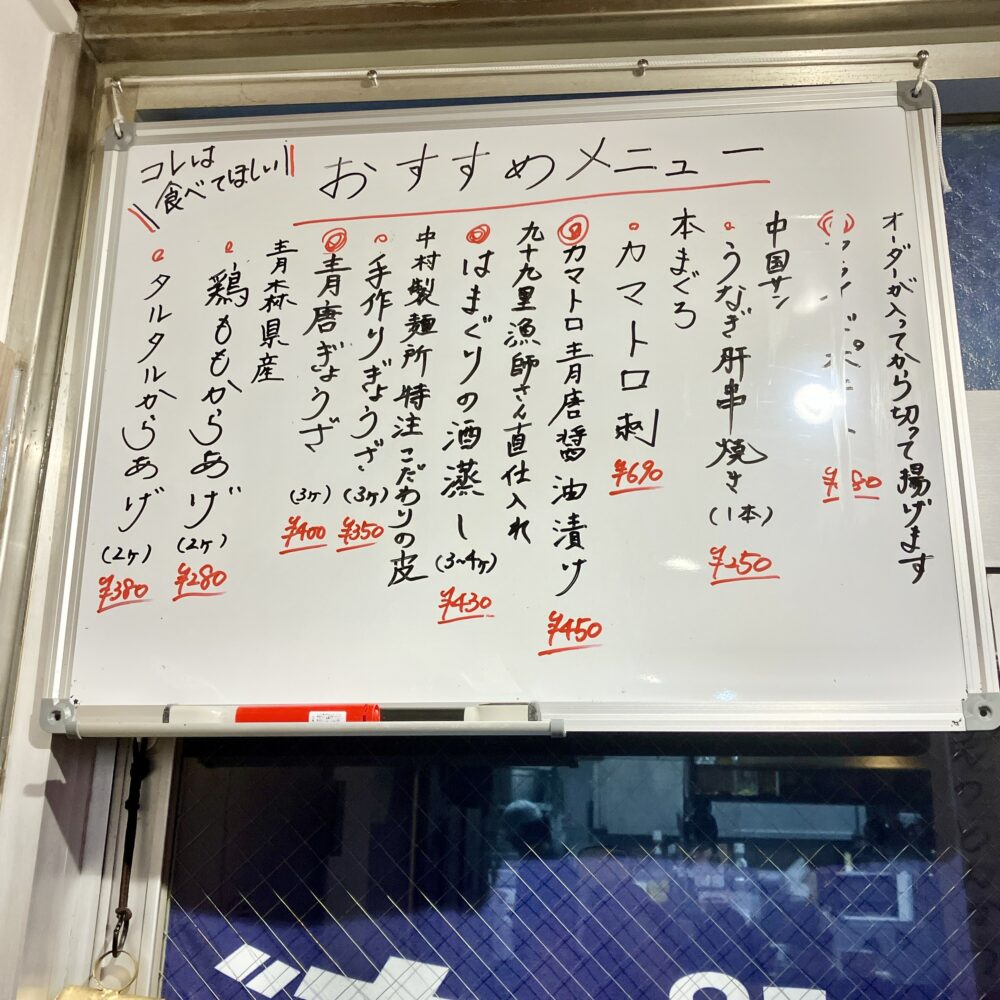 コレは
食べてほしい
おすすめメニュー
オーダーが入ってから切って揚げます
中国サン
うなぎ肝串焼き
(1本)
¥250
本まぐろ
カマトロ刺
¥690
カマトロ青唐醤油漬け
¥450
九十九里漁師さん直仕入れ
はまぐりの酒蒸し
(3~4ヶ)
¥430
中村製麺所特注こだわりの皮
手作りぎょうざ
(3ヶ)
¥350
青唐ぎょうざ
(3ヶ)
¥400
青森県産
鶏ももからあげ
(2ヶ)
¥280
タルタルからあげ
(2ヶ)
¥380